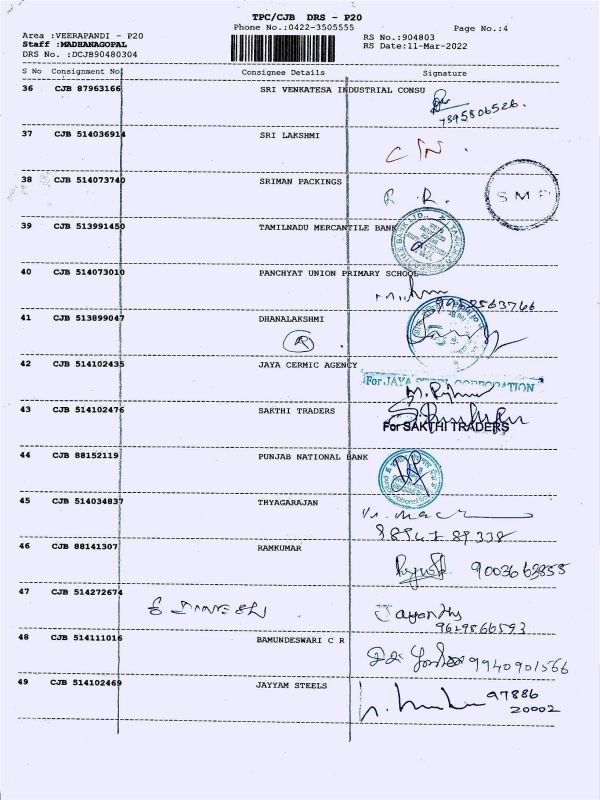 TPC/CJB DRS - P20
Phone No.:0422-3505555
Page No.:4
Area :VEERAPANDI - P20
RS No.:904803
Staff :MADHANAGOPAL
RS Date:11-Mar-2022
DRS No. :DCJB90480304
S No Consignment No Consignee Details Signature
36 CJB 87963166 SRI VENKATESA INDUSTRIAL CONSU
7395806526.
37 CJB 514036914 SRI LAKSHMI
38 CJB 514073740 SRIMAN PACKINGS
R R.
S M P
39 CJB 513991450 TAMILNADU MERCANTILE BANK
40 CJB 514073010 PANCHYAT UNION PRIMARY SCHOOL
41 CJB 513899047 DHANALAKSHMI
R
42 CJB 514102435 JAYA CERMIC AGENCY
For JAYA STEEL CORPORATION
43 CJB 514102476 SAKTHI TRADERS
For SAKTHI TRADERS
44 CJB 88152119 PUNJAB NATIONAL BANK
45 CJB 514034837 THYAGARAJAN
46 CJB 88141307 RAMKUMAR
9003663855
47 CJB 514272674
48 CJB 514111016 BAMUNDESWARI C R
9940901566
49 CJB 514102469 JAYYAM STEELS
97886
20002